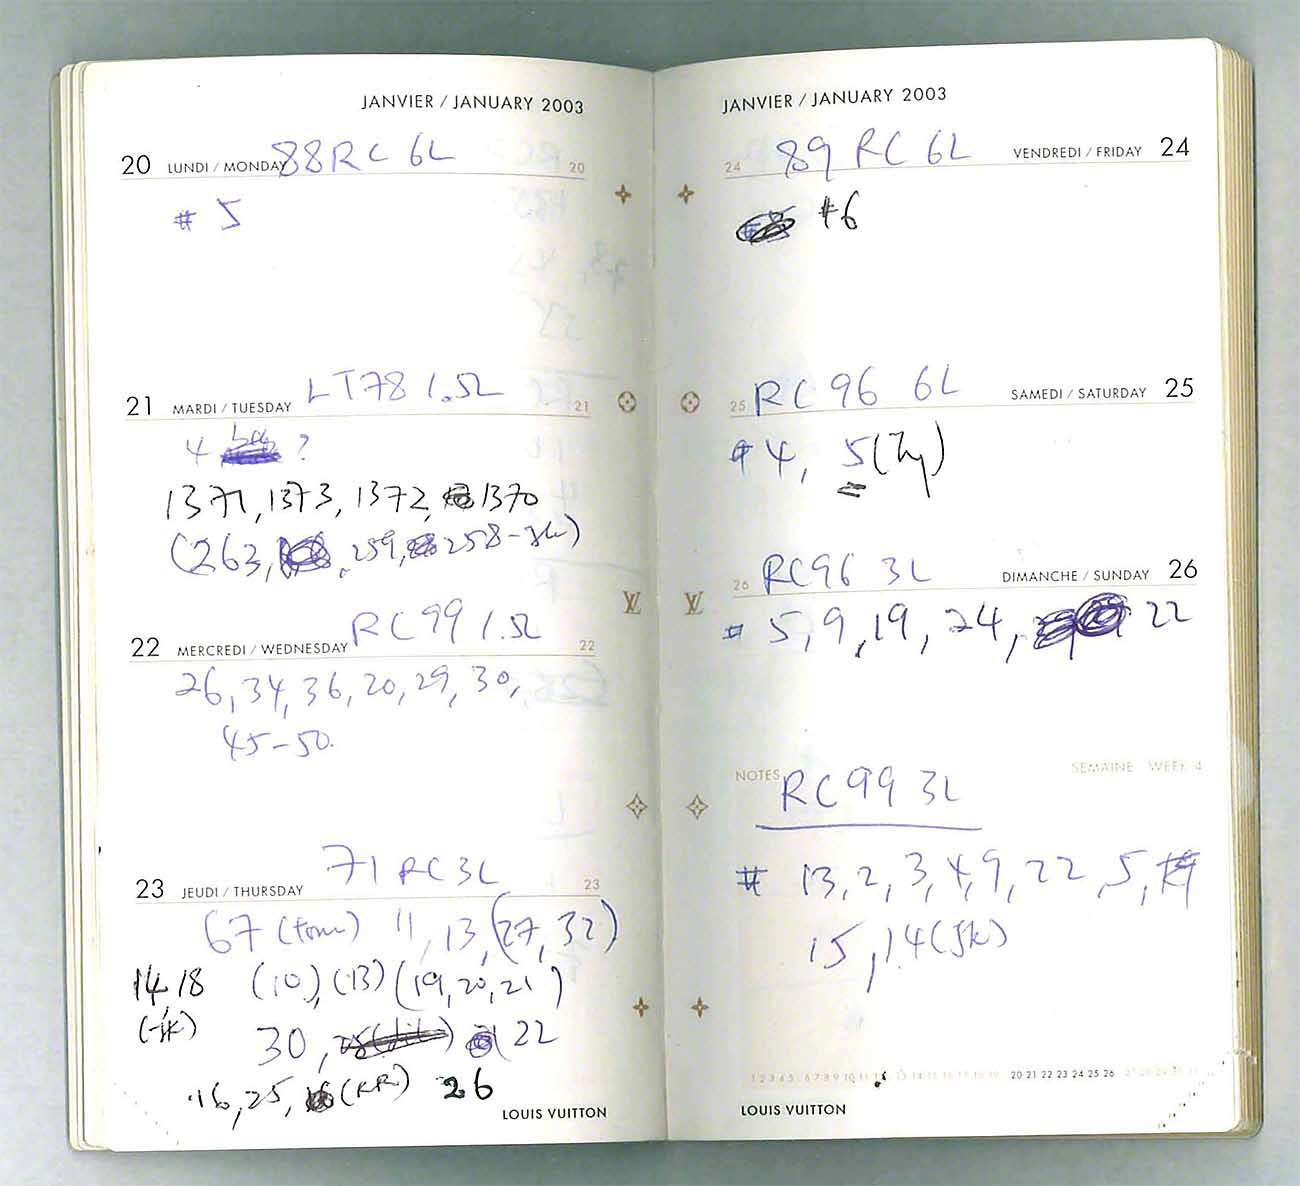 JANVIER / JANUARY 2003
20 LUNDI / MONDAY 88 RC 6L 20
# 5
21 MARDI / TUESDAY LT78 1.5L 21
4 ?
1371, 1373, 1372, 1370
(263, 259, 258-JK)
22 MERCREDI / WEDNESDAY RC99 1.5L 22
26, 34, 36, 20, 29, 30,
45-50.
23 JEUDI / THURSDAY 71 RC 3L 23
67 (tom) 11, 13, (27, 32)
14, 18 (10), (13) (19, 20, 21)
(-JK) 30, 22
16, 25, (RR) 26
LOUIS VUITTON
JANVIER / JANUARY 2003
24 89 RC 6L VENDREDI / FRIDAY 24
#6
25 RC 96 6L SAMEDI / SATURDAY 25
# 4, 5
26 RC96 3L DIMANCHE / SUNDAY 26
# 5, 9, 19, 24, 22
NOTES RC99 3L SEMAINE WEEK 4
# 13, 2, 3, 4, 9, 22, 5,
15, 14 (JK)
1 2 3 4 5 6 7 8 9 10 11 12 13 14 15 16 17 18 19 20 21 22 23 24 25 26 27 28 29 30 31
LOUIS VUITTON